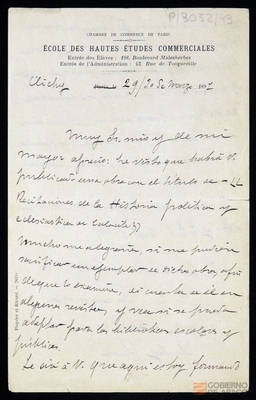 P/8052/43
CHAMBRE DE COMMERCE DE PARIS
ÉCOLE DES HAUTES ÉTUDES COMMERCIALES
Entrée des Élèves : 108, Boulevard Malesherbes
Entrée de l'Administration : 43, Rue de Tocqueville
Clichy 29/30 de Marzo
Muy Sr. mío y de mi
mayor aprecio: he visto que había V.
publicado una obra con el título de
de la Historia política y
eclesiástica
Mucho me alegraría, si me pudiera
un ejemplar de dicha obra, a fin
de que lo examine, dé cuenta de él en
algunas revistas, y vea si se puede
adoptar para las bibliotecas escolares y
públicas.
Le diré a V. que aquí estoy formando
GOBIERNO
DE ARAGON